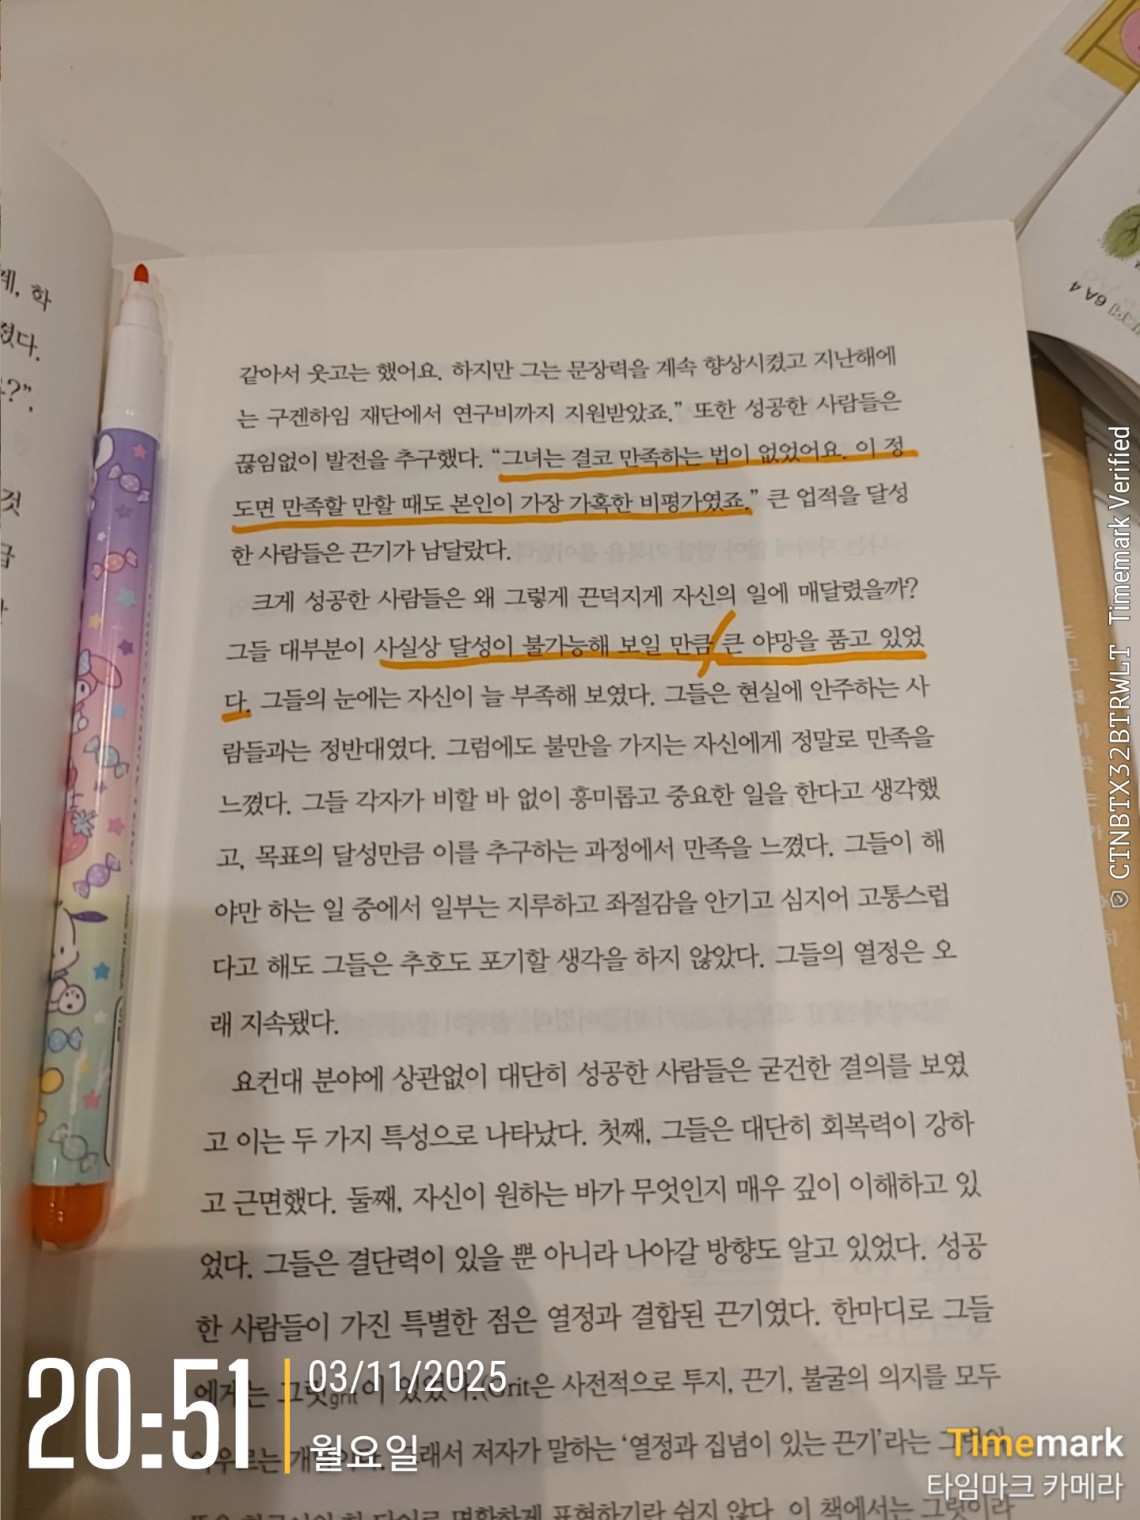 계, 학
졌다.
?",
것
급
같아서 웃고는 했어요. 하지만 그는 문장력을 계속 향상시켰고 지난해에
는 구겐하임 재단에서 연구비까지 지원받았죠.” 또한 성공한 사람들은
끊임없이 발전을 추구했다. “그녀는 결코 만족하는 법이 없었어요. 이 정
도면 만족할 만할 때도 본인이 가장 가혹한 비평가였죠.” 큰 업적을 달성
한 사람들은 끈기가 남달랐다.
크게 성공한 사람들은 왜 그렇게 끈덕지게 자신의 일에 매달렸을까?
그들 대부분이 사실상 달성이 불가능해 보일 만큼 큰 야망을 품고 있었
다. 그들의 눈에는 자신이 늘 부족해 보였다. 그들은 현실에 안주하는 사
람들과는 정반대였다. 그럼에도 불만을 가지는 자신에게 정말로 만족을
느꼈다. 그들 각자가 비할 바 없이 흥미롭고 중요한 일을 한다고 생각했
고, 목표의 달성만큼 이를 추구하는 과정에서 만족을 느꼈다. 그들이 해
야만 하는 일 중에서 일부는 지루하고 좌절감을 안기고 심지어 고통스럽
다고 해도 그들은 추호도 포기할 생각을 하지 않았다. 그들의 열정은 오
래 지속됐다.
요컨대 분야에 상관없이 대단히 성공한 사람들은 굳건한 결의를 보였
고 이는 두 가지 특성으로 나타났다. 첫째, 그들은 대단히 회복력이 강하
고 근면했다. 둘째, 자신이 원하는 바가 무엇인지 매우 깊이 이해하고 있
었다. 그들은 결단력이 있을 뿐 아니라 나아갈 방향도 알고 있었다. 성공
한 사람들이 가진 특별한 점은 열정과 결합된 끈기였다. 한마디로 그들
에게는 그릿grit이 있었다.(Grit은 사전적으로 투지, 끈기, 불굴의 의지를 모두
아우르는 개념이다. 그래서 저자가 말하는 ‘열정과 집념이 있는 끈기’라는
한 단어로 명확하게 표현하기란 쉽지 않다. 이 책에서는 그릿이라
6A 4
20:51
03/11/2025
월요일
Timemark
타임마크 카메라
CTNBTX32BTRWLT Timemark Verified